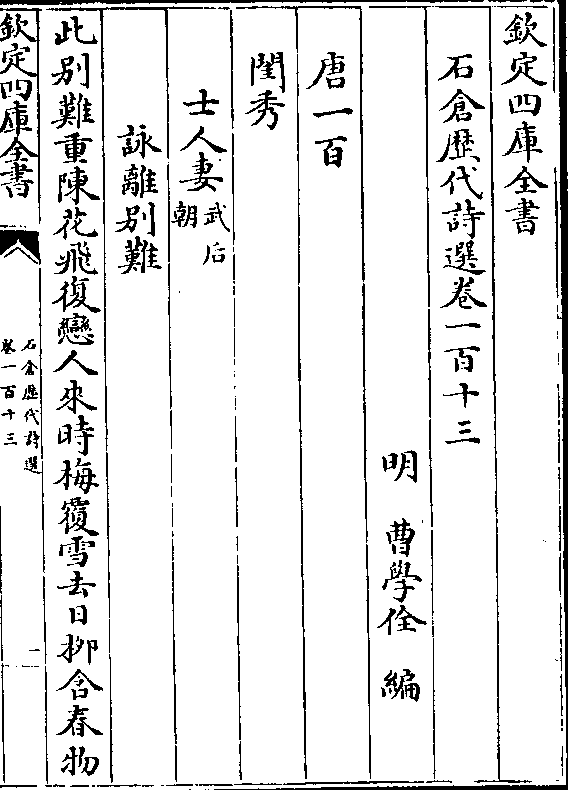 欽定四庫全書
石倉歴代詩選卷一百十三
明 曹學佺 編
唐一百
閨秀
士人妻武后朝
詠離別難
此别難重陳花飛復戀人來時梅覆雪去日柳含春物
欽定四庫全書
石倉歴代詩選
卷一百十三
一